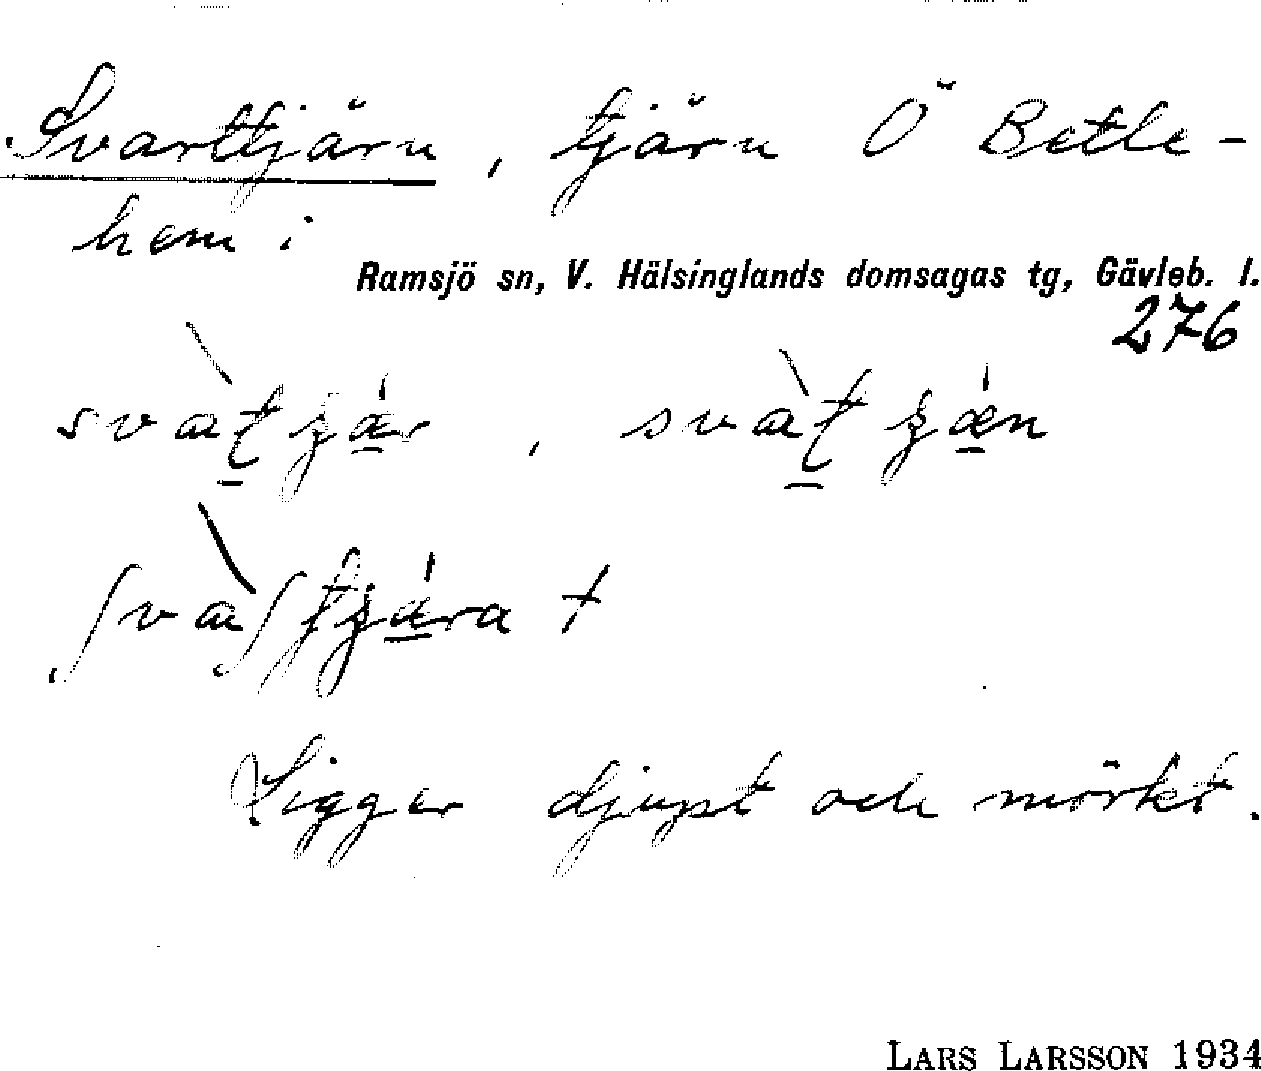 Svarttjärn, tjärn Ö Betle-
hem i
Ramsjö sn, V. Hälsinglands domsagas tg, Gävleb. l.
276
Ligger djupt och mörkt.
LARS LARSSON 1934